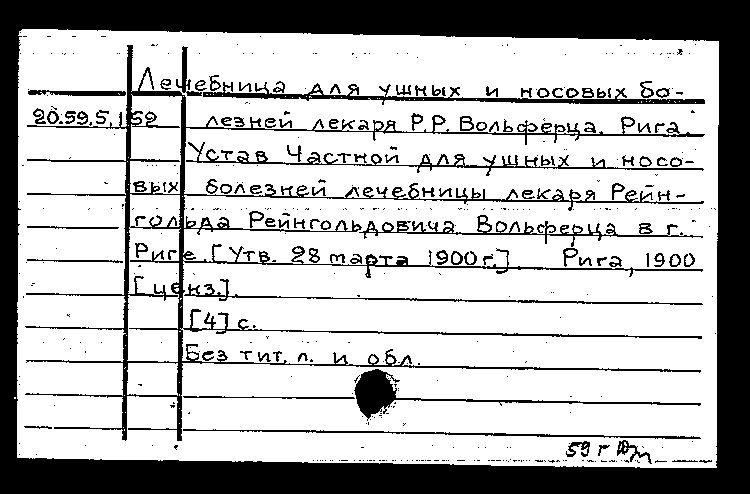 Лечебница для ушных и носовых бо-
20.59.5.159 лезней лекаря Р.Р. Вольферца. Рига.
Устав Частной для ушных и носо-
вых болезней лечебницы лекаря Рейн-
гольда Рейнгольдовича Вольферца в г.
Риге. [Утв. 28 марта 1900 г.]. Рига, 1900
[ценз.].
[4] с.
Без тит. л. и обл.
59 г